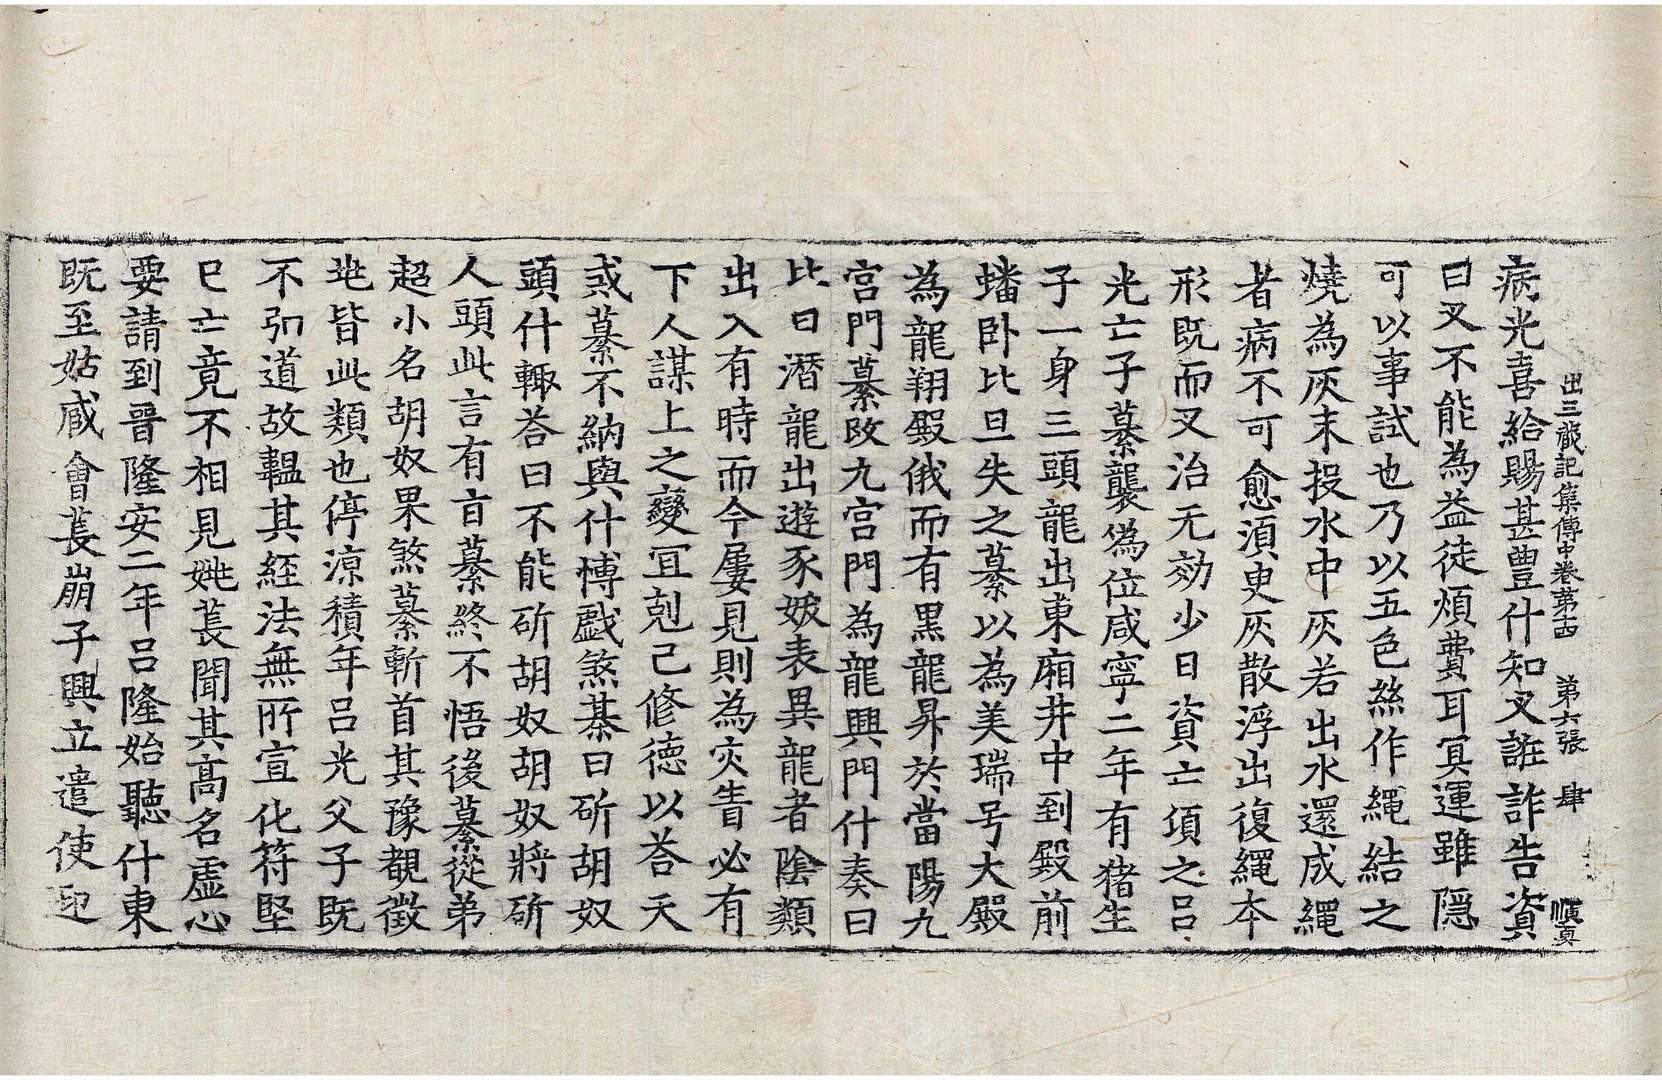 出三藏記集傳中卷苐十四 第六張 肆 順真
病光喜給賜甚豊什知叉誑詐告資
曰叉不能為益徒煩費耳冥運雖隠
可以事試也乃以五色絲作繩結之
燒為灰末投水中灰若出水還成繩
者病不可愈湏臾灰散浮出復繩本
形既而叉治无効少日資亡頃之呂
光亡子纂襲偽位咸寧二年有猪生
子一身三頭龍出東廂井中到殿前
蟠卧比旦失之纂以為美瑞号大殿
為龍翔殿俄而有黒龍昇於當陽九
宮門纂改九宮門為龍興門什奏曰
比日潜龍出遊豕妭表異龍者陰類
出入有時而今屢見則為灾眚必有
下人謀上之變冝剋己修德以荅天
戒纂不納與什愽戲煞棊曰斫胡奴
頭什輙荅曰不能斫胡奴胡奴將斫
人頭此言有旨纂終不悟後纂從弟
超小名胡奴果煞纂斬首其豫覩徵
地皆此類也停涼積年呂光父子既
不弘道故韞其経法無所宣化符堅
已亡竟不相見姚萇聞其高名虛心
要請到晉隆安二年呂隆始聽什東
既至姑臧會萇崩子興立遣使迎